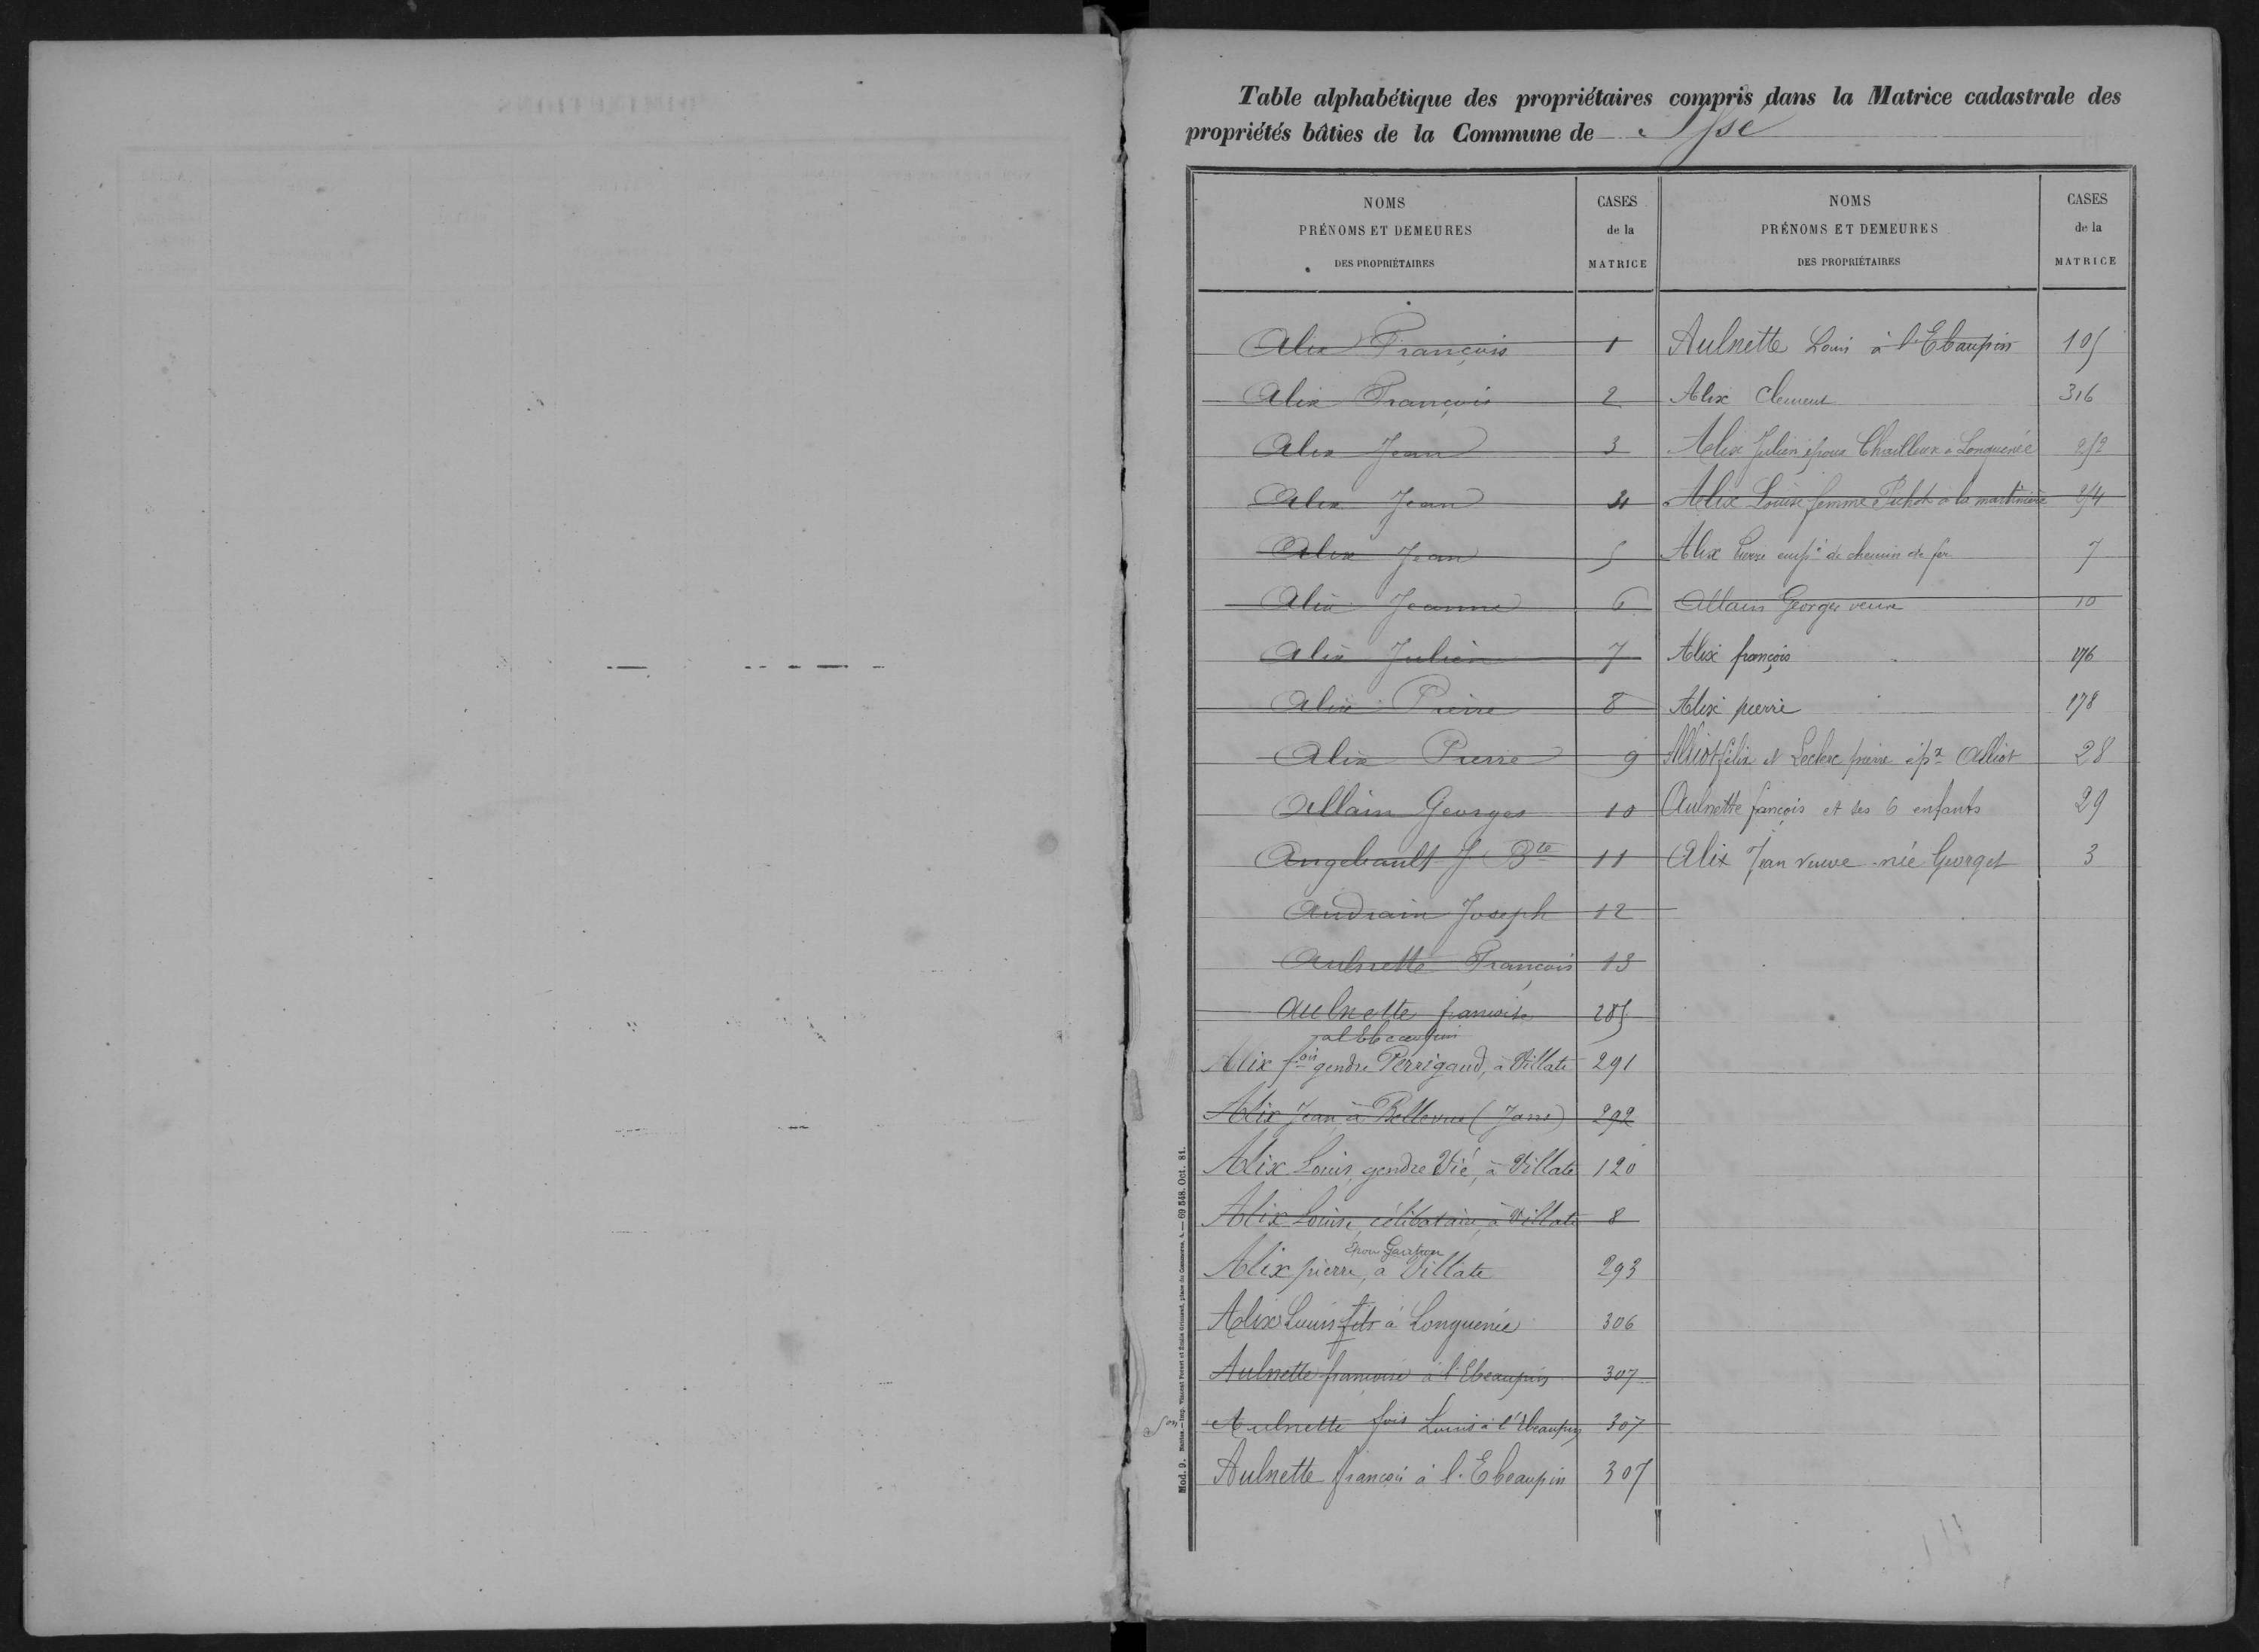 Table alphabétique des propriétaires compris dans la Matrice cadastrale des
propriétés bâties de la Commune de Issé
NOMS
PRÉNOMS ET DEMEURES
DES PROPRIÉTAIRES
CASES
de la
MATRICE
Alix François 1
Alix François 2
Alix Jean 3
Alix Jean 4
Alix Jean 5
Alix Jeanne 6
Alix Julien 7
Alix Pierre 8
Alix Pierre 9
Allain Georges 10
Angebault J. Bte 11
Audrain Joseph 12
Aulnette François 13
Aulnette francoise 285
a l'Ebeaupin
Alix fois gendre Perrigaud, à Villate 291
Alix Jean à Bellevue (Jarre) 292
Alix Louis, gendre Vié, à Villate 120
Alix Louise, célibataire, à Villate 8
Alix pierre, à Villate 293
Alix Louis fils à Longuenée 306
Aulnette francoise à l'Ebeaupin 307
Aulnette fois Louis à l'Ebeaupin 307
Aulnette francois à l'Ebeaupin 307
NOMS
PRÉNOMS ET DEMEURES
DES PROPRIÉTAIRES
CASES
de la
MATRICE
Aulnette Louis à l'Ebaupin 105
Alix Clement 316
Alix Julien époux Chailleux à Longuenée 252
Alix Louise femme à la martinière 254
Alix Pierre empé de chemin de fer 7
Allain Georges veuve 10
Alix françois 176
Alix pierre 178
Alliot félix et Leclerc pierre épx Alliot 28
Aulnette françois et ses 6 enfants 29
Alix Jean veuve née Georget 3
Mod. 9. Nantes.—Imp. Vincent Forest et Émile Grimaud, place du Commerce, 4.— 69 548. Oct. 81.